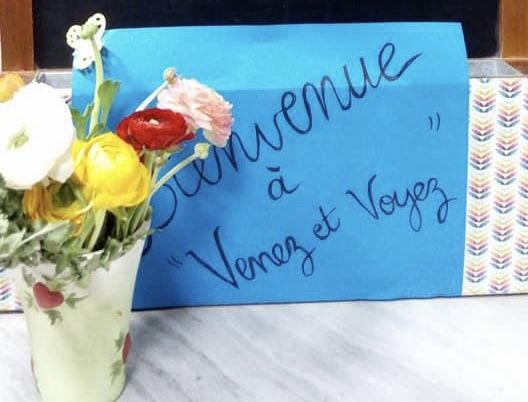 Bienvenue
à
"Venez et Voyez"